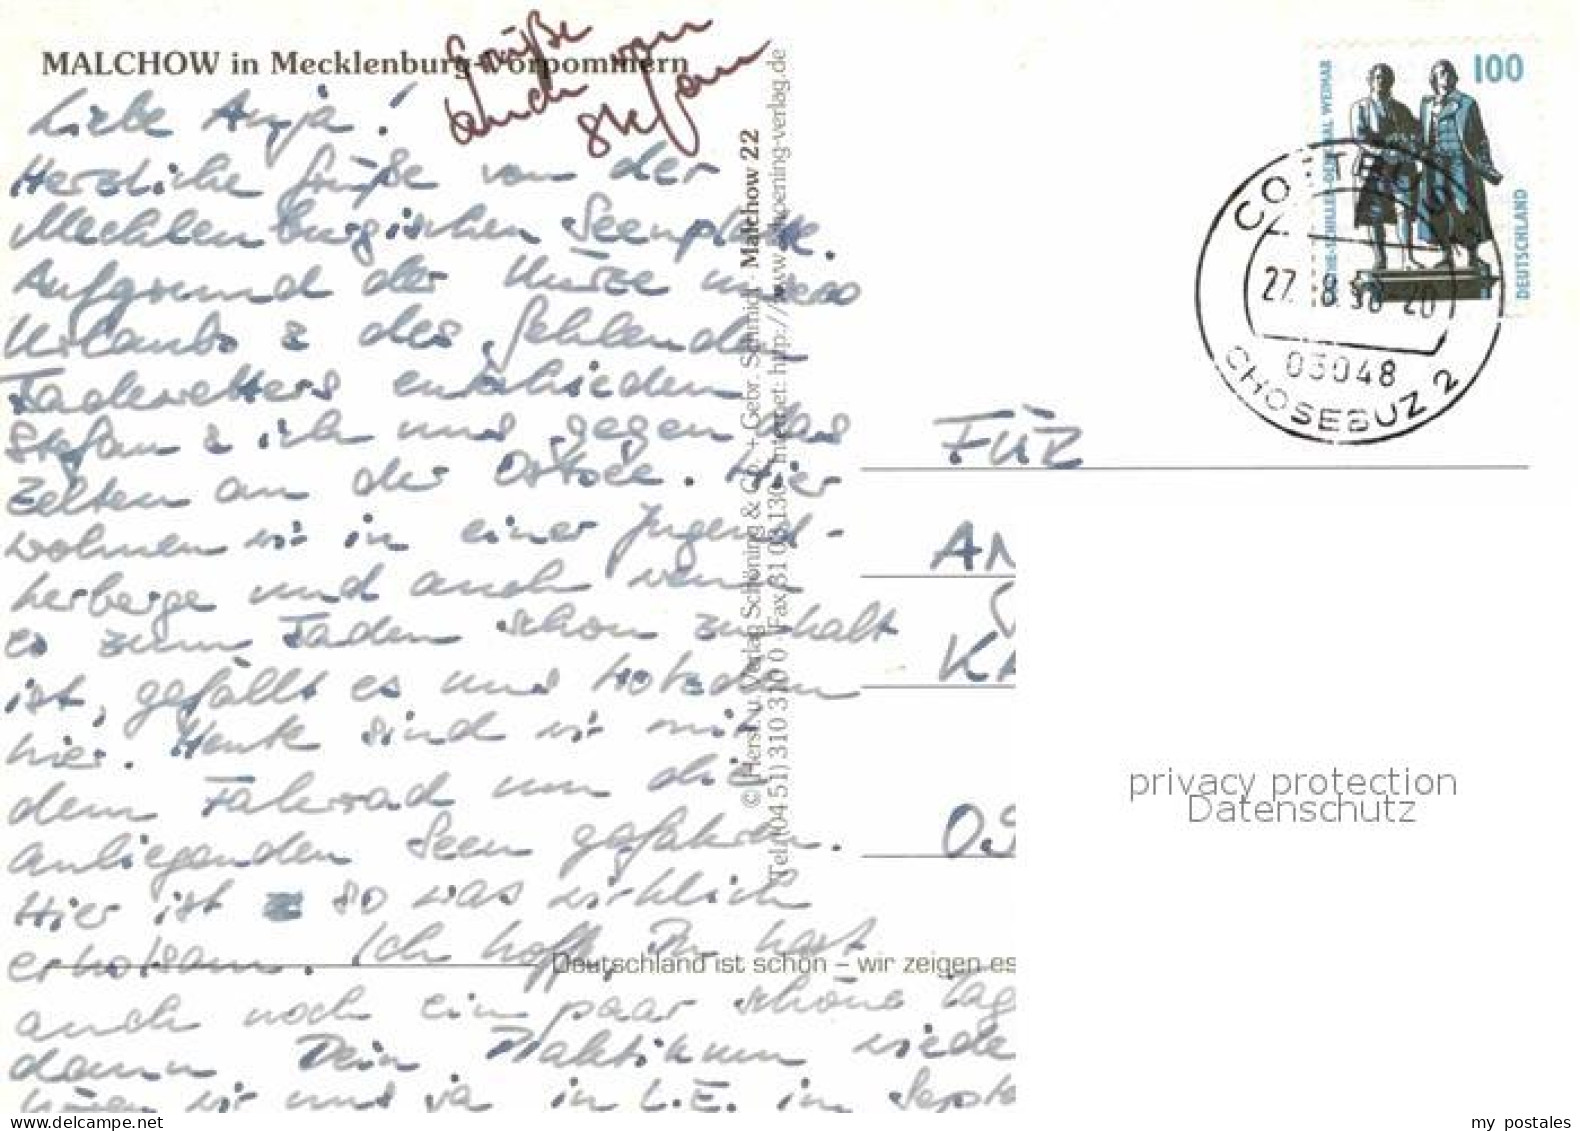 MALCHOW in Mecklenburg-Vorpommern
Grüße
auch von
Stefan
Liebe Anja!
Herzliche Grüße von der
Mecklenburgischen Seenplatte.
Aufgrund der Kürze unseres
Urlaubs & des fehlenden
Badewetters entschieden
Stefan & ich uns gegen das
Zelten an der Ostsee. Hier
wohnen wir in einer Jugend-
herberge und auch wenn
es zum Baden schon zu kalt
ist, gefällt es uns trotzdem
hier. Heute sind wir mit
dem Fahrrad um die
anliegenden Seen gefahren.
Hier ist so was wirklich
erholsam. Ich hoffe, Du hast
auch noch ein paar schöne Tag
dann Dein Praktikum wiede
wir uns ja in L.E. im Septe
© Herst. u. Verlag Schöning & Co. + Gebr. Schmidt Malchow 22
Tel. (04 51) 310 310 0 Fax 31 03 130 Internet: http://www.schoening-verlag.de
Deutschland ist schön – wir zeigen es
100
GOETHE-SCHILLER-DENKMAL WEIMAR
DEUTSCHLAND
COTTBUS
27. 8.98-20
03048
CHOSEBUZ 2
FÜR
AN
KA
09
privacy protection
Datenschutz
my postales